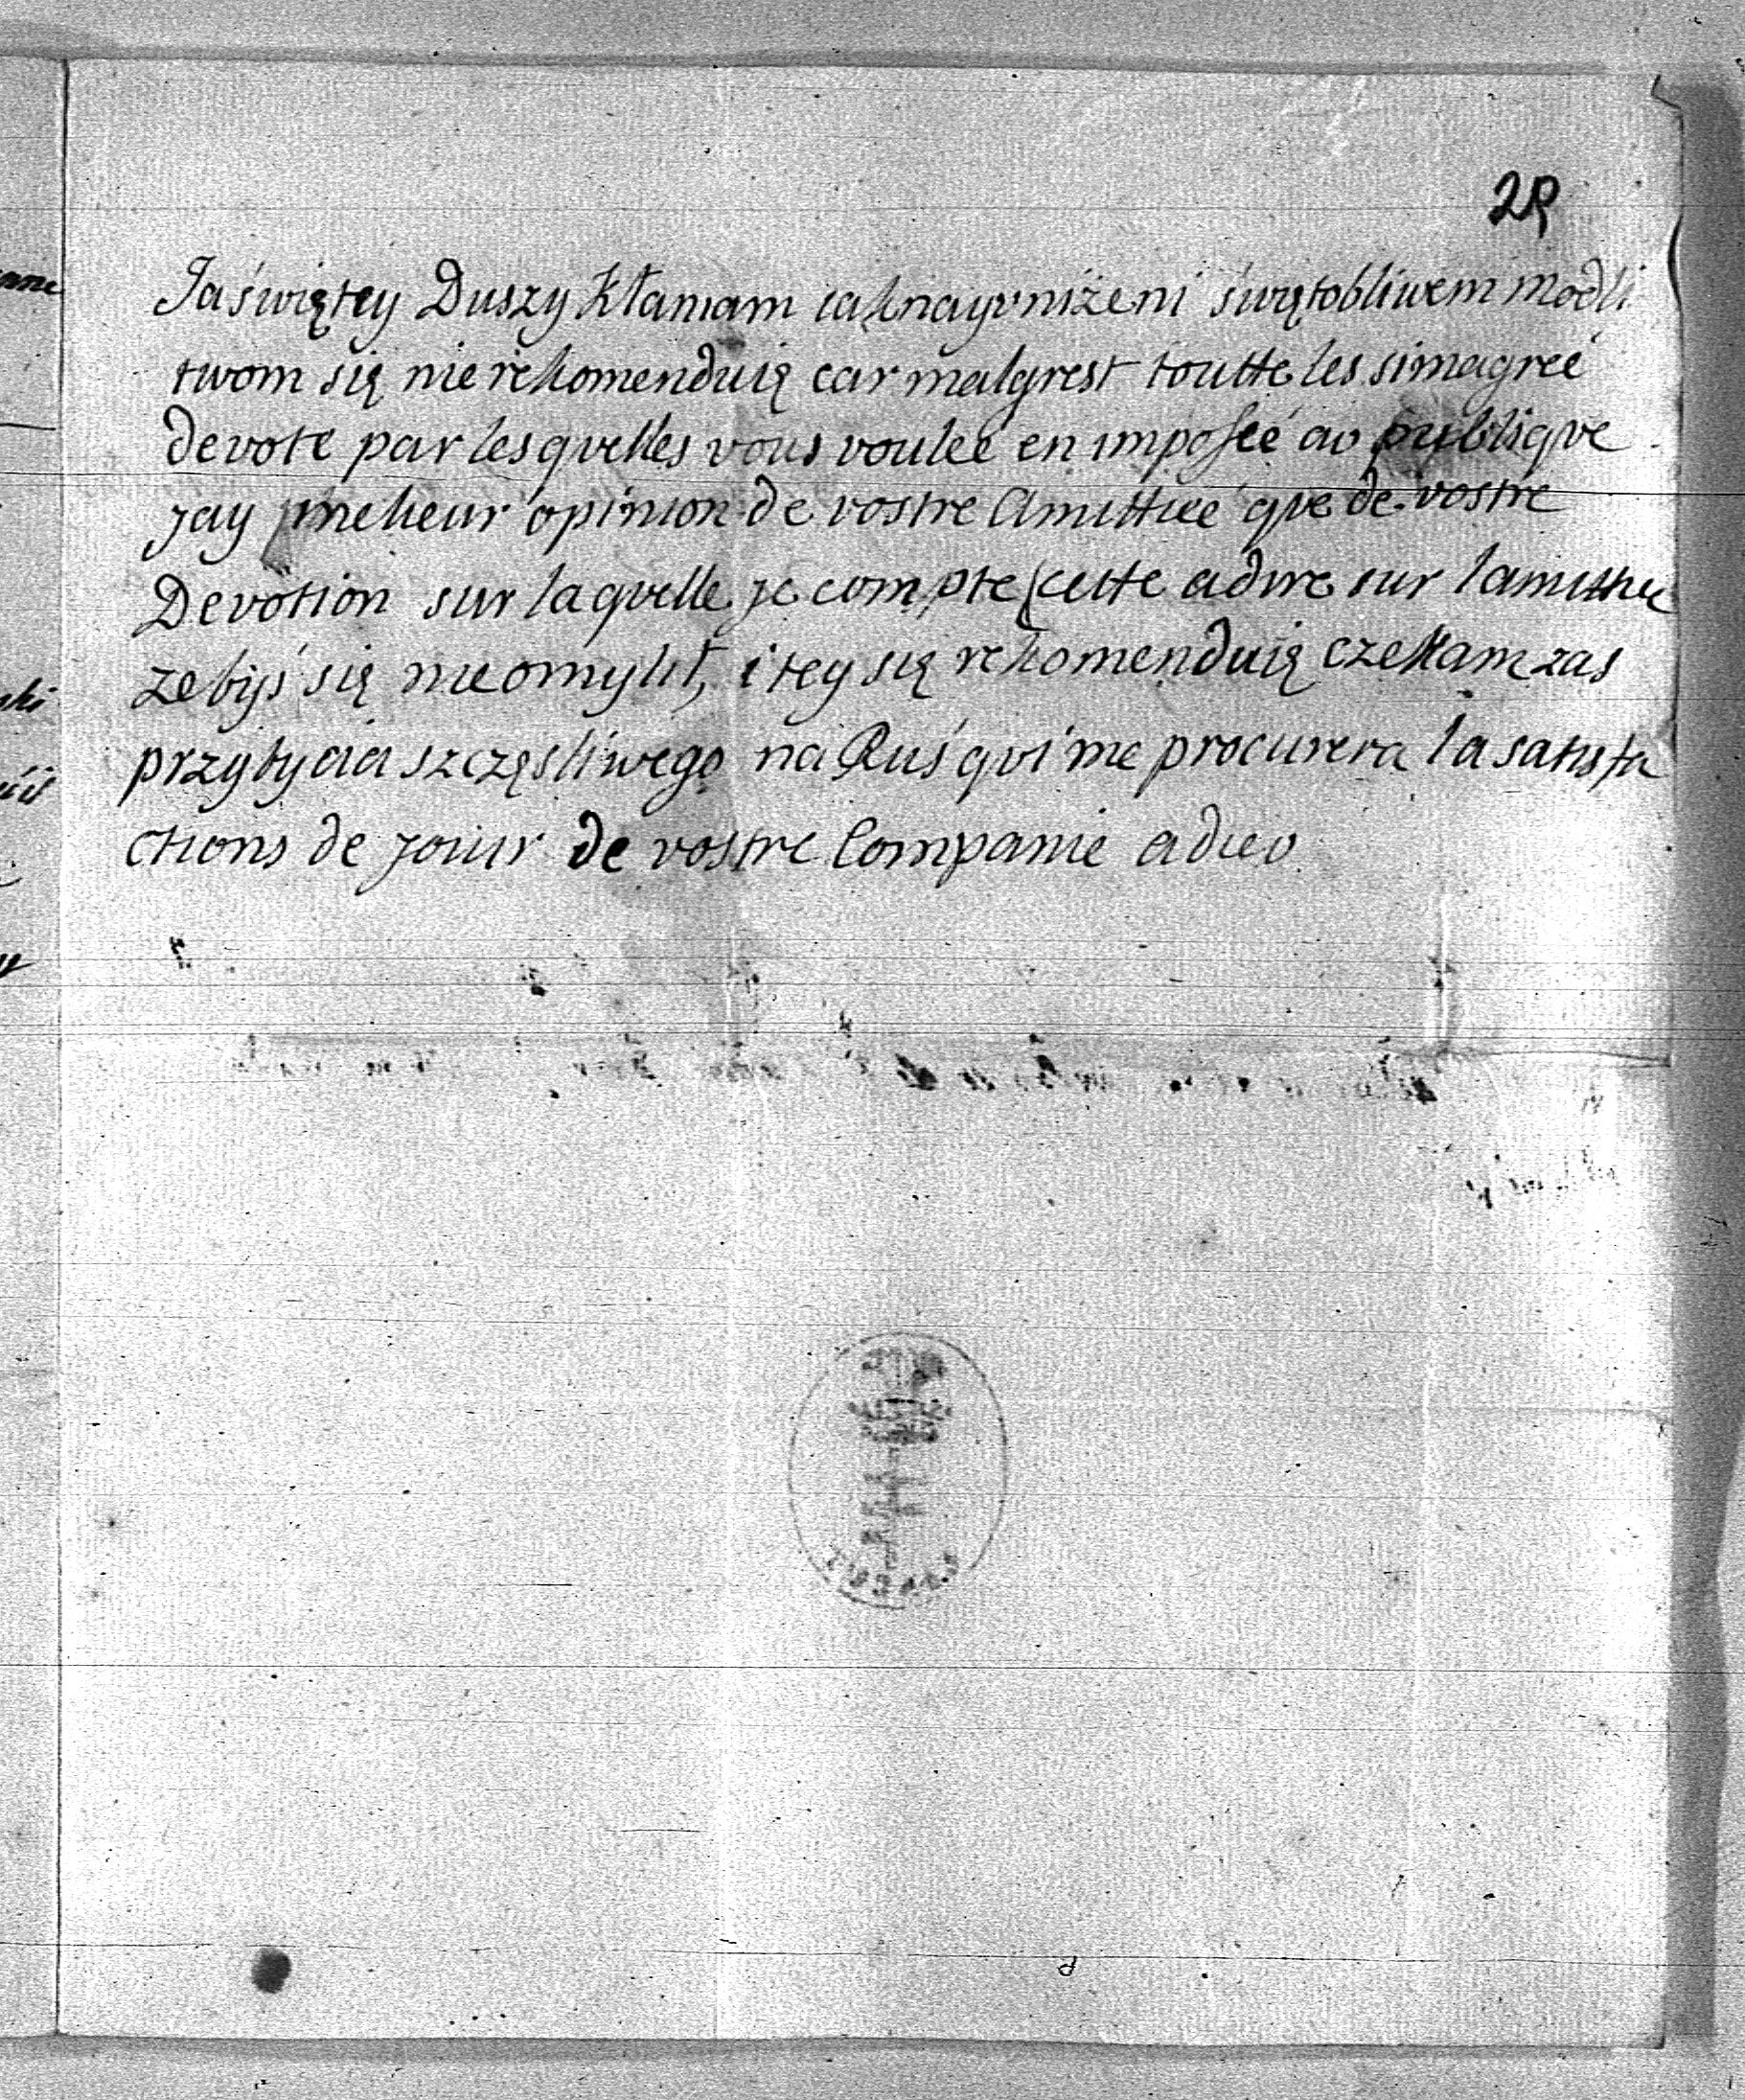 29
Ja swiętey Duszy Kłaniam iak nayvniżeni swiętobliwem modli
twom się nie rekomenduię car malgrest toutte les simagreé
devote par lesqvelles vous voulee en imposeé av publiqve
jay meheur opinion de vostre Amittieé qve de vostre
Devotion sur laqvelle je compte (cette adire sur lamittiee
zebyś się nieomylił, i tey się rekomenduię czekam zas
przybycia szczęsliwego na Ruś qvi me procurera la satisfa
ctions de jouir de vostre Companie adiev